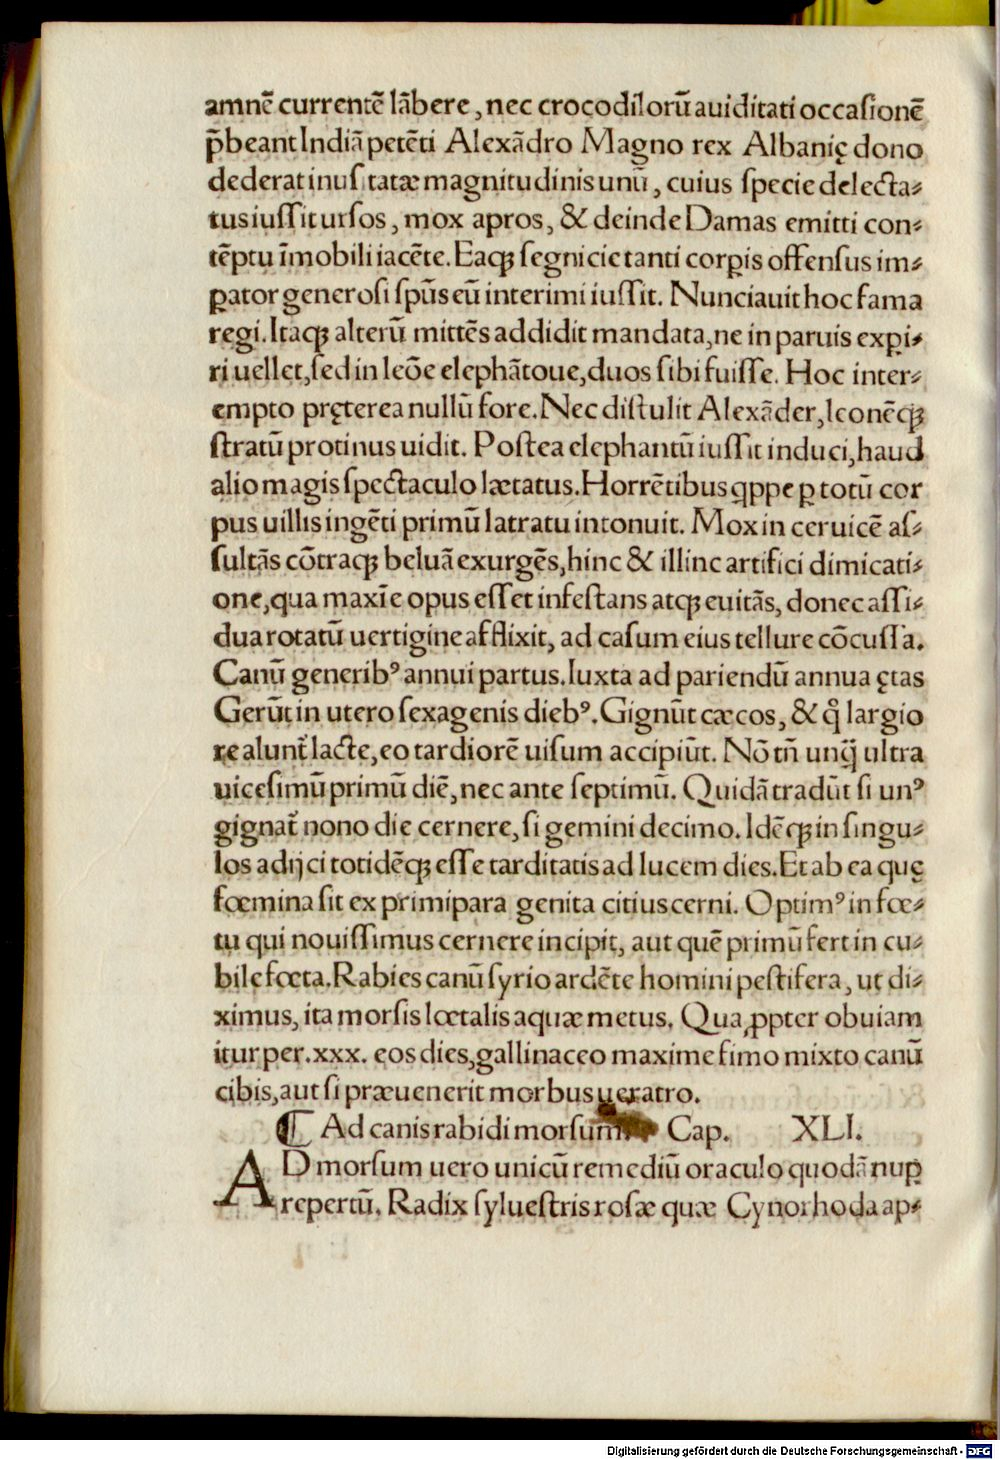 amnē currentē lābere, nec crocodilorū auiditati occasionē
p̄beant Indiā petēti Alexādro Magno rex Albanię dono
dederat inusitatæ magnitudinis unū, cuius specie delecta⸗
tus iussit ursos, mox apros, & deinde Damas emitti con⸗
tēptu īmobili iacēte. Eaqꝫ segnicie tanti corꝑis offensus im⸗
ꝑator generosi spūs eū interimi iussit. Nunciauit hoc fama
regi. Itaqꝫ alterū mittēs addidit mandata, ne in paruis exꝑi⸗
ri uellet, sed in leōe elephātoue, duos sibi fuisse. Hoc inter⸗
empto pręterea nullū fore. Nec distulit Alexāder, leonēqꝫ
stratū protinus uidit. Postea elephantū iussit induci, haud
alio magis spectaculo lætatus. Horrētibus qppe ꝑ totū cor
pus uillis ingēti primū latratu intonuit. Mox in ceruicē as⸗
sultās cōtraqꝫ beluā exurgēs, hinc & illinc artifici dimicati⸗
one, qua maxīe opus esset infestans atqꝫ euitās, donec assi⸗
dua rotatū uertigine afflixit, ad casum eius tellure cōcussa.
Canū generibꝰ annui partus. Iuxta ad pariendū annua ętas
Gerūt in utero sexagenis diebꝰ. Gignūt cæcos, & q̊ largio
re alunt᷑ lacte, eo tardiorē uisum accipiūt. Nō tn̄ unq̄ ultra
uicesimū primū diē, nec ante septimū. Quidā tradūt si unꝰ
gignat᷑ nono die cernere, si gemini decimo. Idēqꝫ in singu⸗
los adijci totidēqꝫ esse tarditatis ad lucem dies. Et ab ea quę
fœmina sit ex primipara genita citius cerni. Optimꝰ in fœ⸗
tu qui nouissimus cernere incipit, aut quē primū fert in cu⸗
bile fœta. Rabies canū syrio ardēte homini pestifera, ut di⸗
ximus, ita morsis lœtalis aquæ metus. Qua ꝓpter obuiam
itur per .xxx. eos dies, gallinaceo maxime fimo mixto canū
cibis, aut si præuenerit morbus ueratro.
¶ Ad canis rabidi morsum. Cap. XLI.
AD morsum uero unicū remediū oraculo quodā nuꝑ
repertū. Radix syluestris rosæ quæ Cynorhoda ap⸗
Digitalisierung gefördert durch die Deutsche Forschungsgemeinschaft - DFG